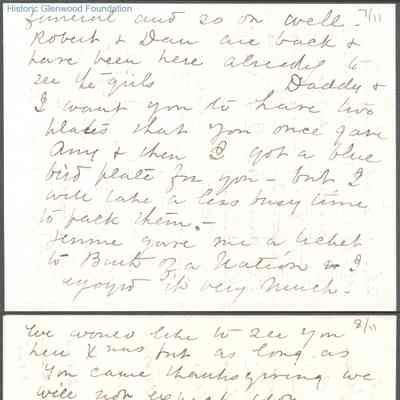 Historic Glenwood Foundation
funeral and so on well - 7/11
Robert & Dan are back &
have been here already to
see the girls Daddy &
I want you to have two
plates that you once gave
Amy & then I got a blue
bird plate for you - but I
will take a less busy time
to pack them. -
Jennie gave me a ticket
to Birth of a Nation & I
enjoyed it very much -
We would like to see you 8/11
here Xmas but as long as
you came thanksgiving we
will not expect you